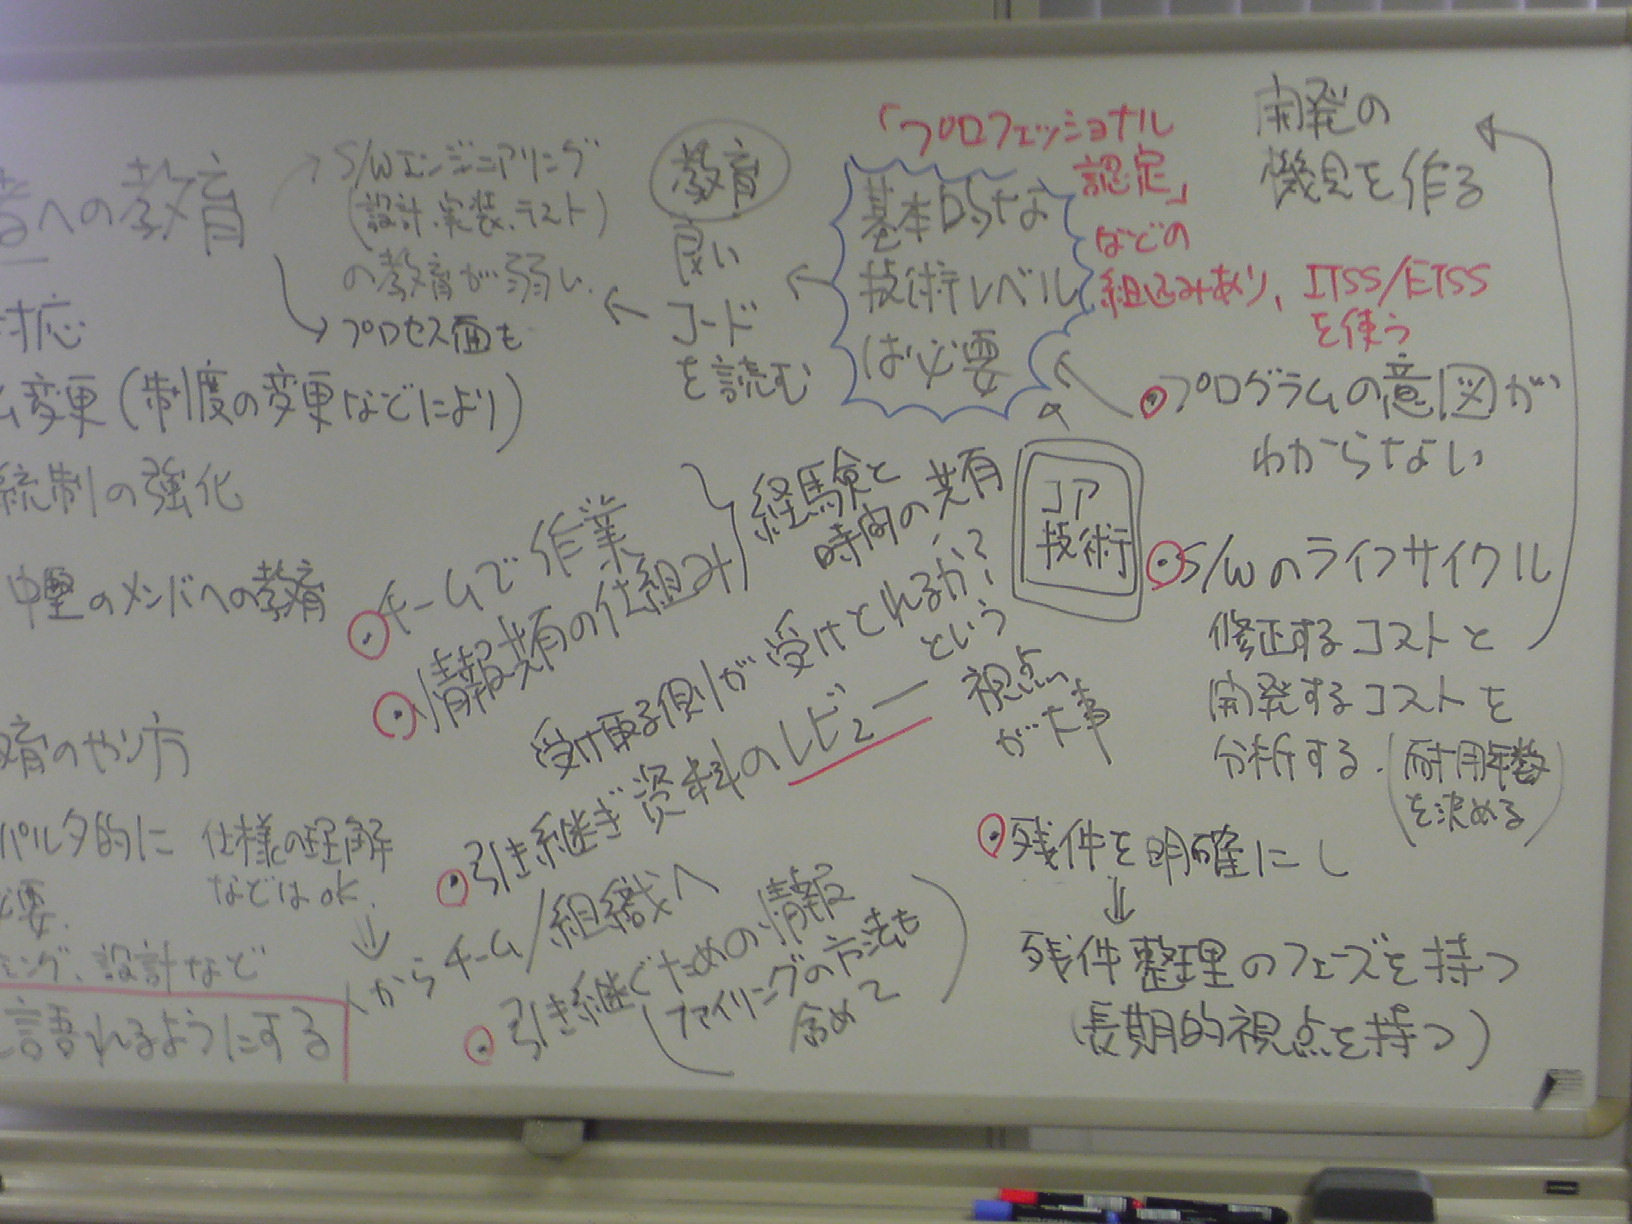 への教育
対応
変更(制度の変更などにより)
統制の強化
中堅のメンバへの教育
育のやり方
パルタ的に
必要.
ミング、設計など
言語れるようにする
仕様の理解
などはOK.
S/Wエンジニアリング
(設計.実装.テスト)
の教育が弱い.
プロセス面も
教育
良い
コード
を読む
基本的な
技術レベル
は必要
「プロフェッショナル
認定」
などの
組込みあり、ITSS/ETSS
を使う
開発の
機会を作る
・プログラムの意図が
わからない
コア
技術
・S/Wのライフサイクル
修正するコストと
開発するコストを
分析する.
(耐用年数
を決める)
・残件を明確にし
⇓
残件整理のフェーズを持つ
(長期的視点を持つ)
・チームで作業
・情報共有の仕組み
経験と
時間の共有
受け取る側が受けとれるか?
という
視点
が大事
・引き継ぎ資料のレビュー
からチーム/組織へ
・引き継ぐための情報
(ファイリングの方法も
含めて)